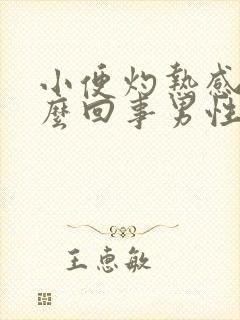 小便灼熱感
麼回事男性
王惠敏